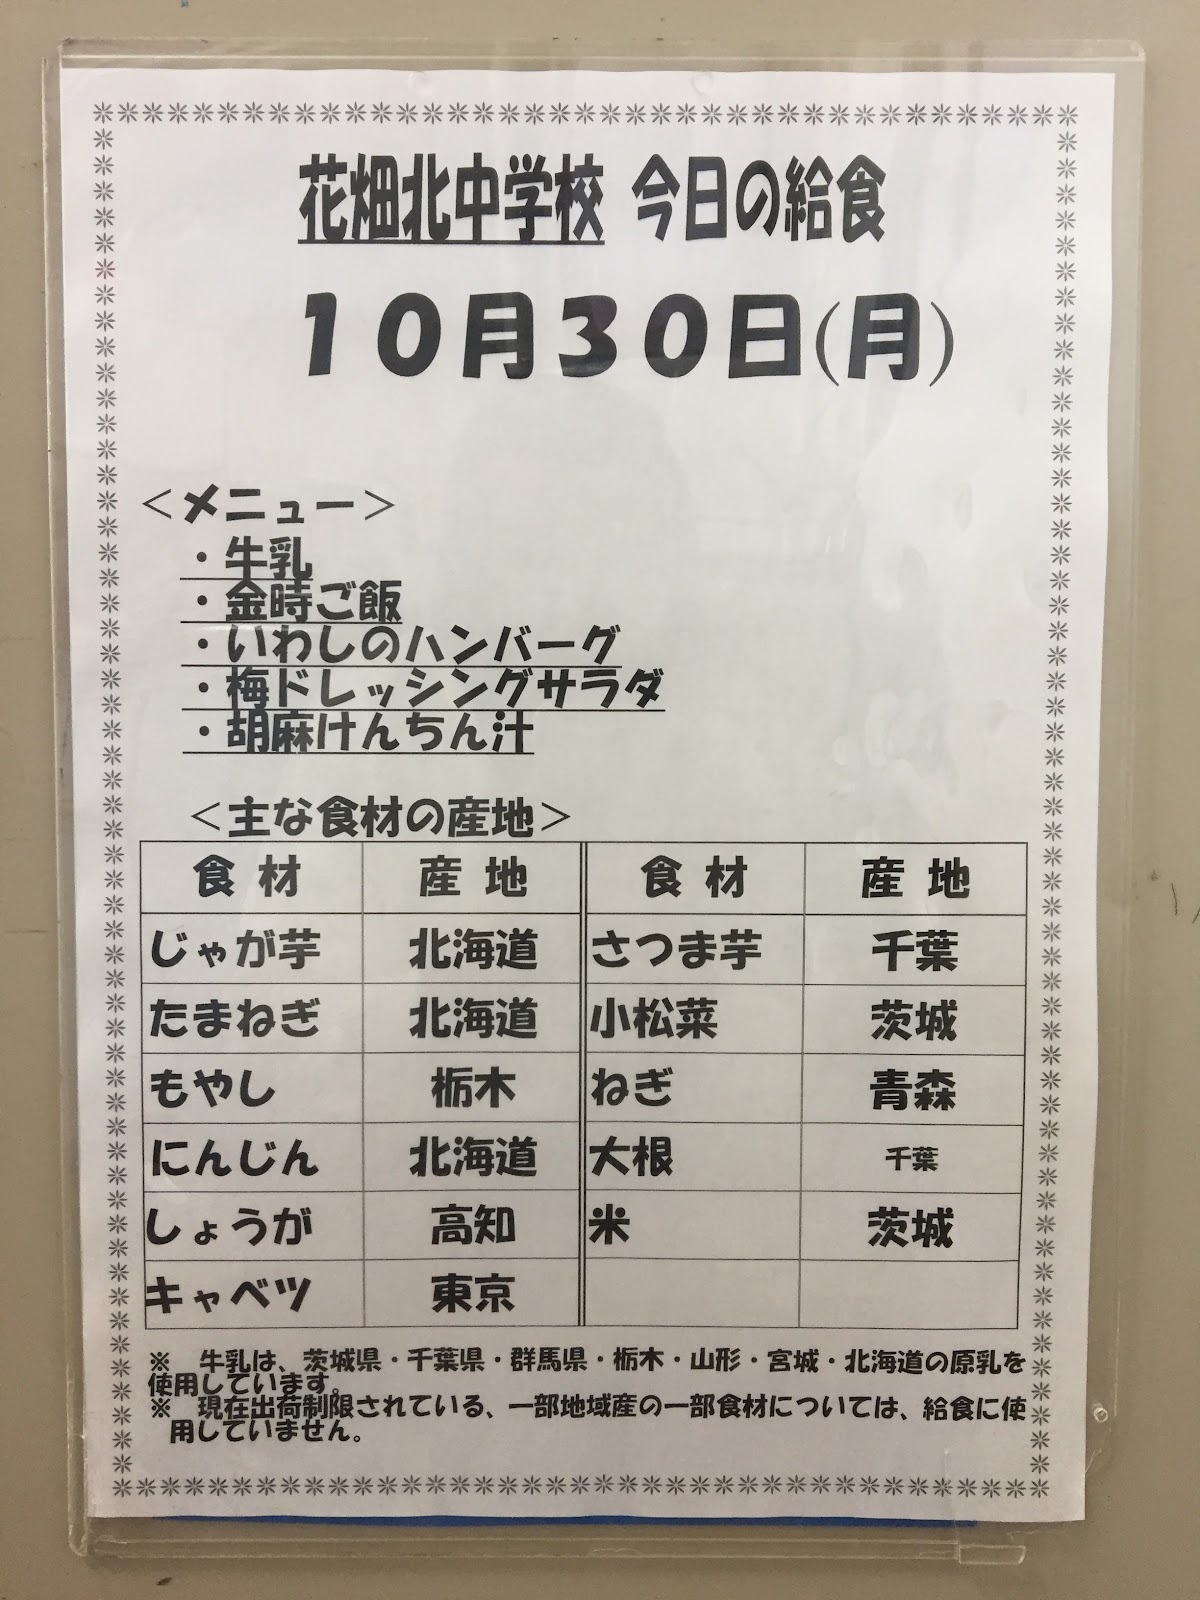 花畑北中学校 今日の給食
10月30日(月)
＜メニュー＞
・牛乳
・金時ご飯
・いわしのハンバーグ
・梅ドレッシングサラダ
・胡麻けんちん汁
＜主な食材の産地＞
食 材 産 地 食 材 産 地
じゃが芋 北海道 さつま芋 千葉
たまねぎ 北海道 小松菜 茨城
もやし 栃木 ねぎ 青森
にんじん 北海道 大根 千葉
しょうが 高知 米 茨城
キャベツ 東京
※ 牛乳は、茨城県・千葉県・群馬県・栃木・山形・宮城・北海道の原乳を
使用しています。
※ 現在出荷制限されている、一部地域産の一部食材については、給食に使
用していません。